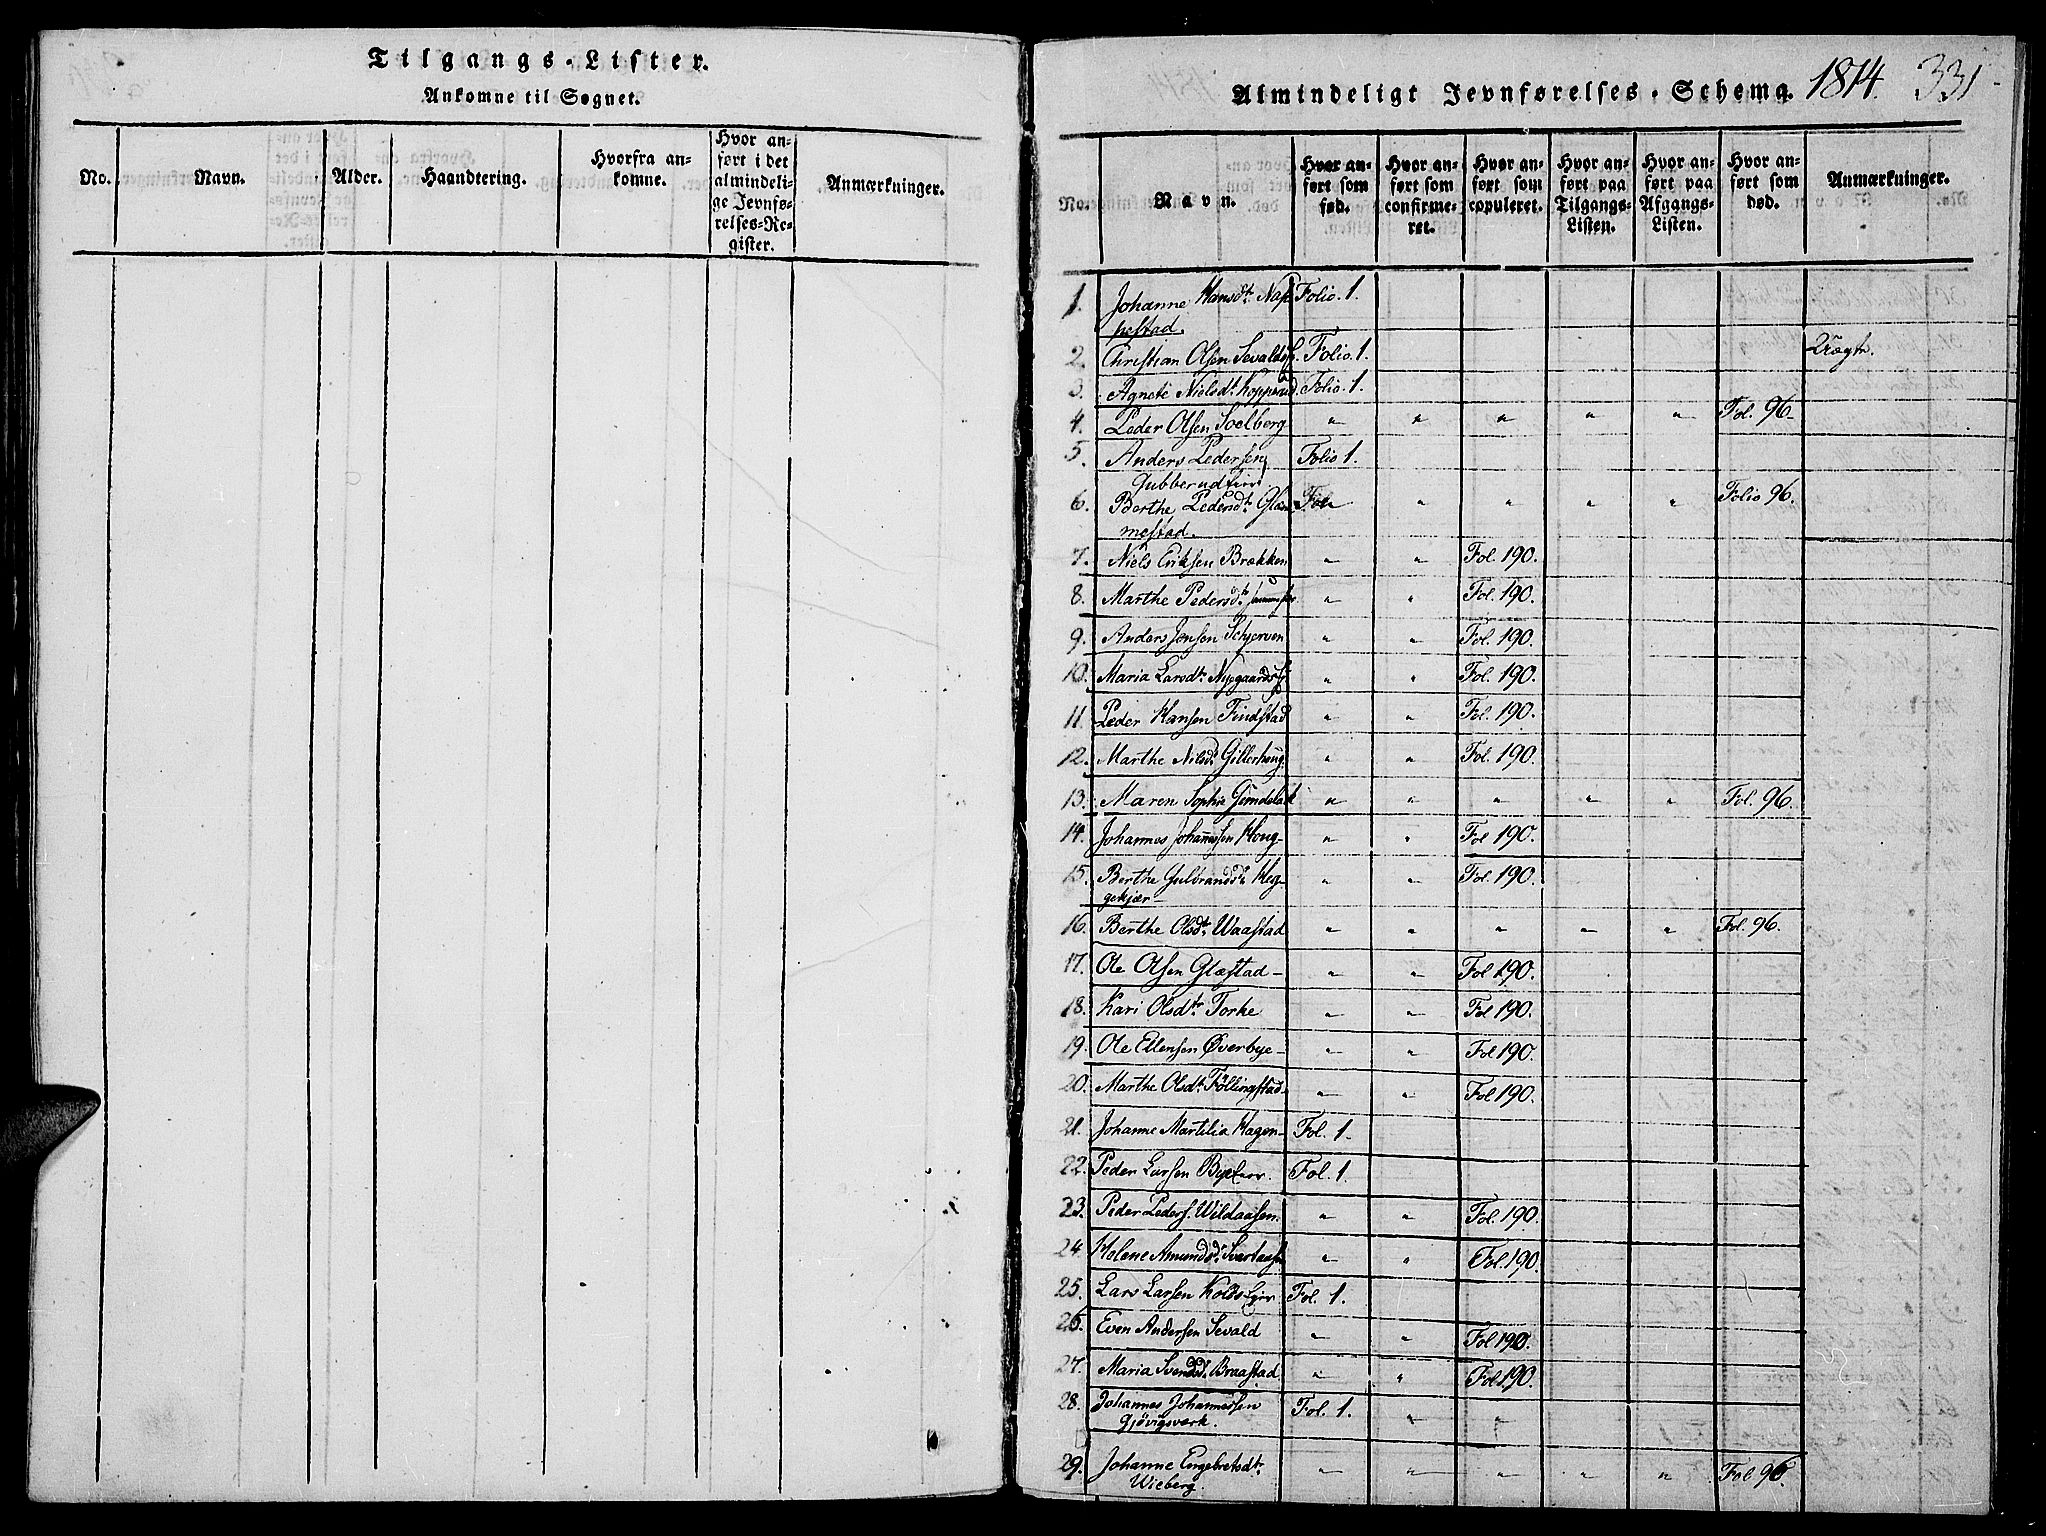 Tilgangs-Lister.
Ankomne til Sognet.
No.
Navn.
Alder.
Haandtering.
Hvorfra an-
komne.
Hvor an-
ført i det
almindeli-
ge Jevnfø-
relses-Re-
gister.
Anmærkninger.
Almindeligt Jevnførelses-Schema. 1814. 331
No.
Navn.
Hvor an-
ført som
fød.
Hvor an-
ført som
confirme-
ret.
Hvor an-
ført som
copuleret.
Hvor an-
ført paa
Tilgangs-
Listen.
Hvor an-
ført paa
Afgangs-
Listen.
Hvor an-
ført som
død.
Anmærkninger.
1. Johanne Hansdtr. Nap- Folio. 1.
pestad.
2. Christian Olsen Folio. 1.
3. Agnete Nielsdtr. Kopperud. Folio. 1.
4. Peder Olsen Soelberg " " " " " Fol. 96-
5. Anders Pedersen Folio 1.
6. Berthe Pedersdtr. Glæs- " " " " Folio 96.
mestad.
7. Niels Eriksen Brækken " " Fol. 190.
8. Marthe Pedersdtr. " " Fol. 190.
9. Anders Jensen Schjerven " " Fol. 190.
10. Maria Larsdtr. " " Fol. 190.
11. Peder Hansen Findstad " " Fol. 190.
12. Marthe Nilsd. Gillerhoug " " Fol. 190.
13. Maren Sophie " " " " " Fol. 96.
14. Johannes Johannessen Houg- " " Fol 190.
15. Berthe Gulbrandsd. Heg- " " Fol. 190.
gekjær-
16. Berthe Olsdtr. Waastad " " " " " Fol. 96.
17. Ole Olsen Glæstad- " " Fol 190.
18. Kari Olsdtr. Torke " " Fol 190.
19. Ole Ellensen Øverbye- " " Fol 190.
20. Marthe Olsdtr. Föllingstad " " Fol 190.
21. Johanne Martilia Hagen- Fol. 1-
22. Peder Larsen Fol. 1.
23. Peder Peders. Wildaasen. " " Fol. 190.
24. Helene Amundsd. " " Fol. 190.
25. Lars Larsen Fol. 1.
26. Even Andersen Sevald " " Fol 190.
27. Maria Svendsd. Braastad " " Fol 190.
28. Johannes Johannessen Fol. 1. " "
Gjövigsværk.
29. Johanne Engebretsdtr. " " " " " Fol 96.
Wieberg.